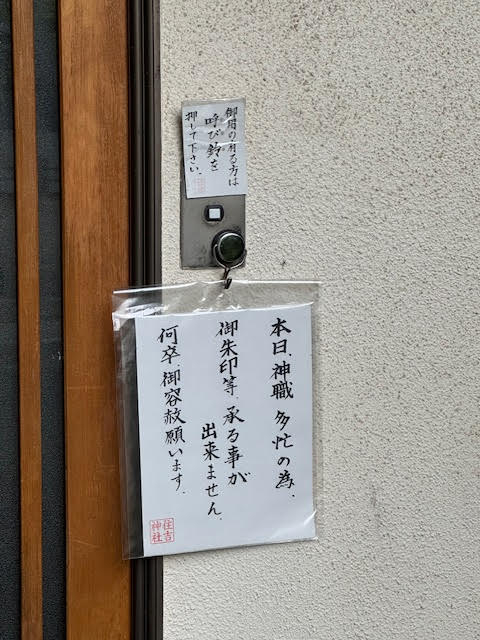 御用の有る方は
呼び鈴を
押して下さい。
本日、神職 多忙の為、
御朱印等、承る事が
出来ません。
何卒、御容赦願います。
住吉
神社